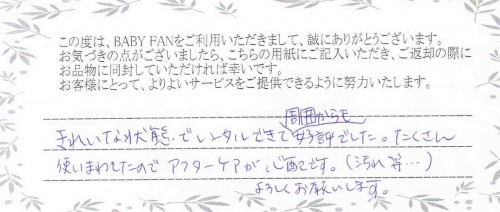 この度は、BABY FANをご利用いただきまして、誠にありがとうございます。
お気づきの点がございましたら、こちらの用紙にご記入いただき、ご返却の際に
お品物に同封していただければ幸いです。
お客様にとって、よりよいサービスをご提供できるように努力いたします。
周囲からも
きれいな状態でレンタルできて好評でした。たくさん
使いまわしたのでアフターケアが、ご心配です。(汚れ等…)
よろしくお願いします。